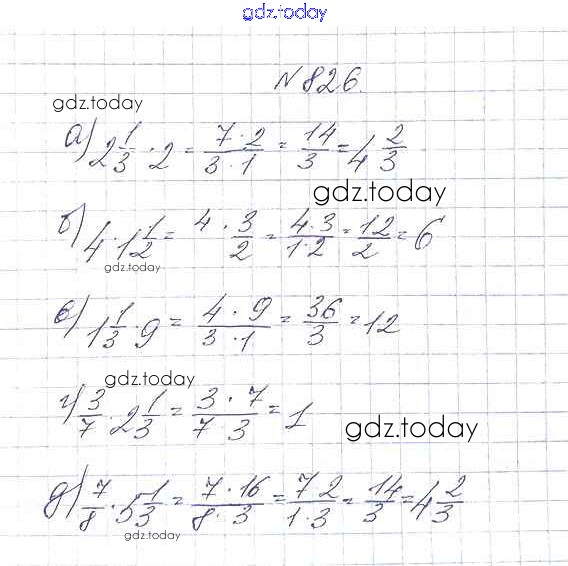 gdz.today
N 826.
gdz.today
а) 2 1/3 · 2 = 7·2/3·1 = 14/3 = 4 2/3
gdz.today
б) 4 · 1 1/2 = 4 · 3/2 = 4·3/1·2 = 12/2 = 6
gdz.today
в) 1 1/3 · 9 = 4·9/3·1 = 36/3 = 12
gdz.today
г) 3/7 · 2 1/3 = 3·7/7 3 = 1
gdz.today
д) 7/8 · 5 1/3 = 7·16/8·3 = 7 2/1·3 = 14/3 = 4 2/3
gdz.today